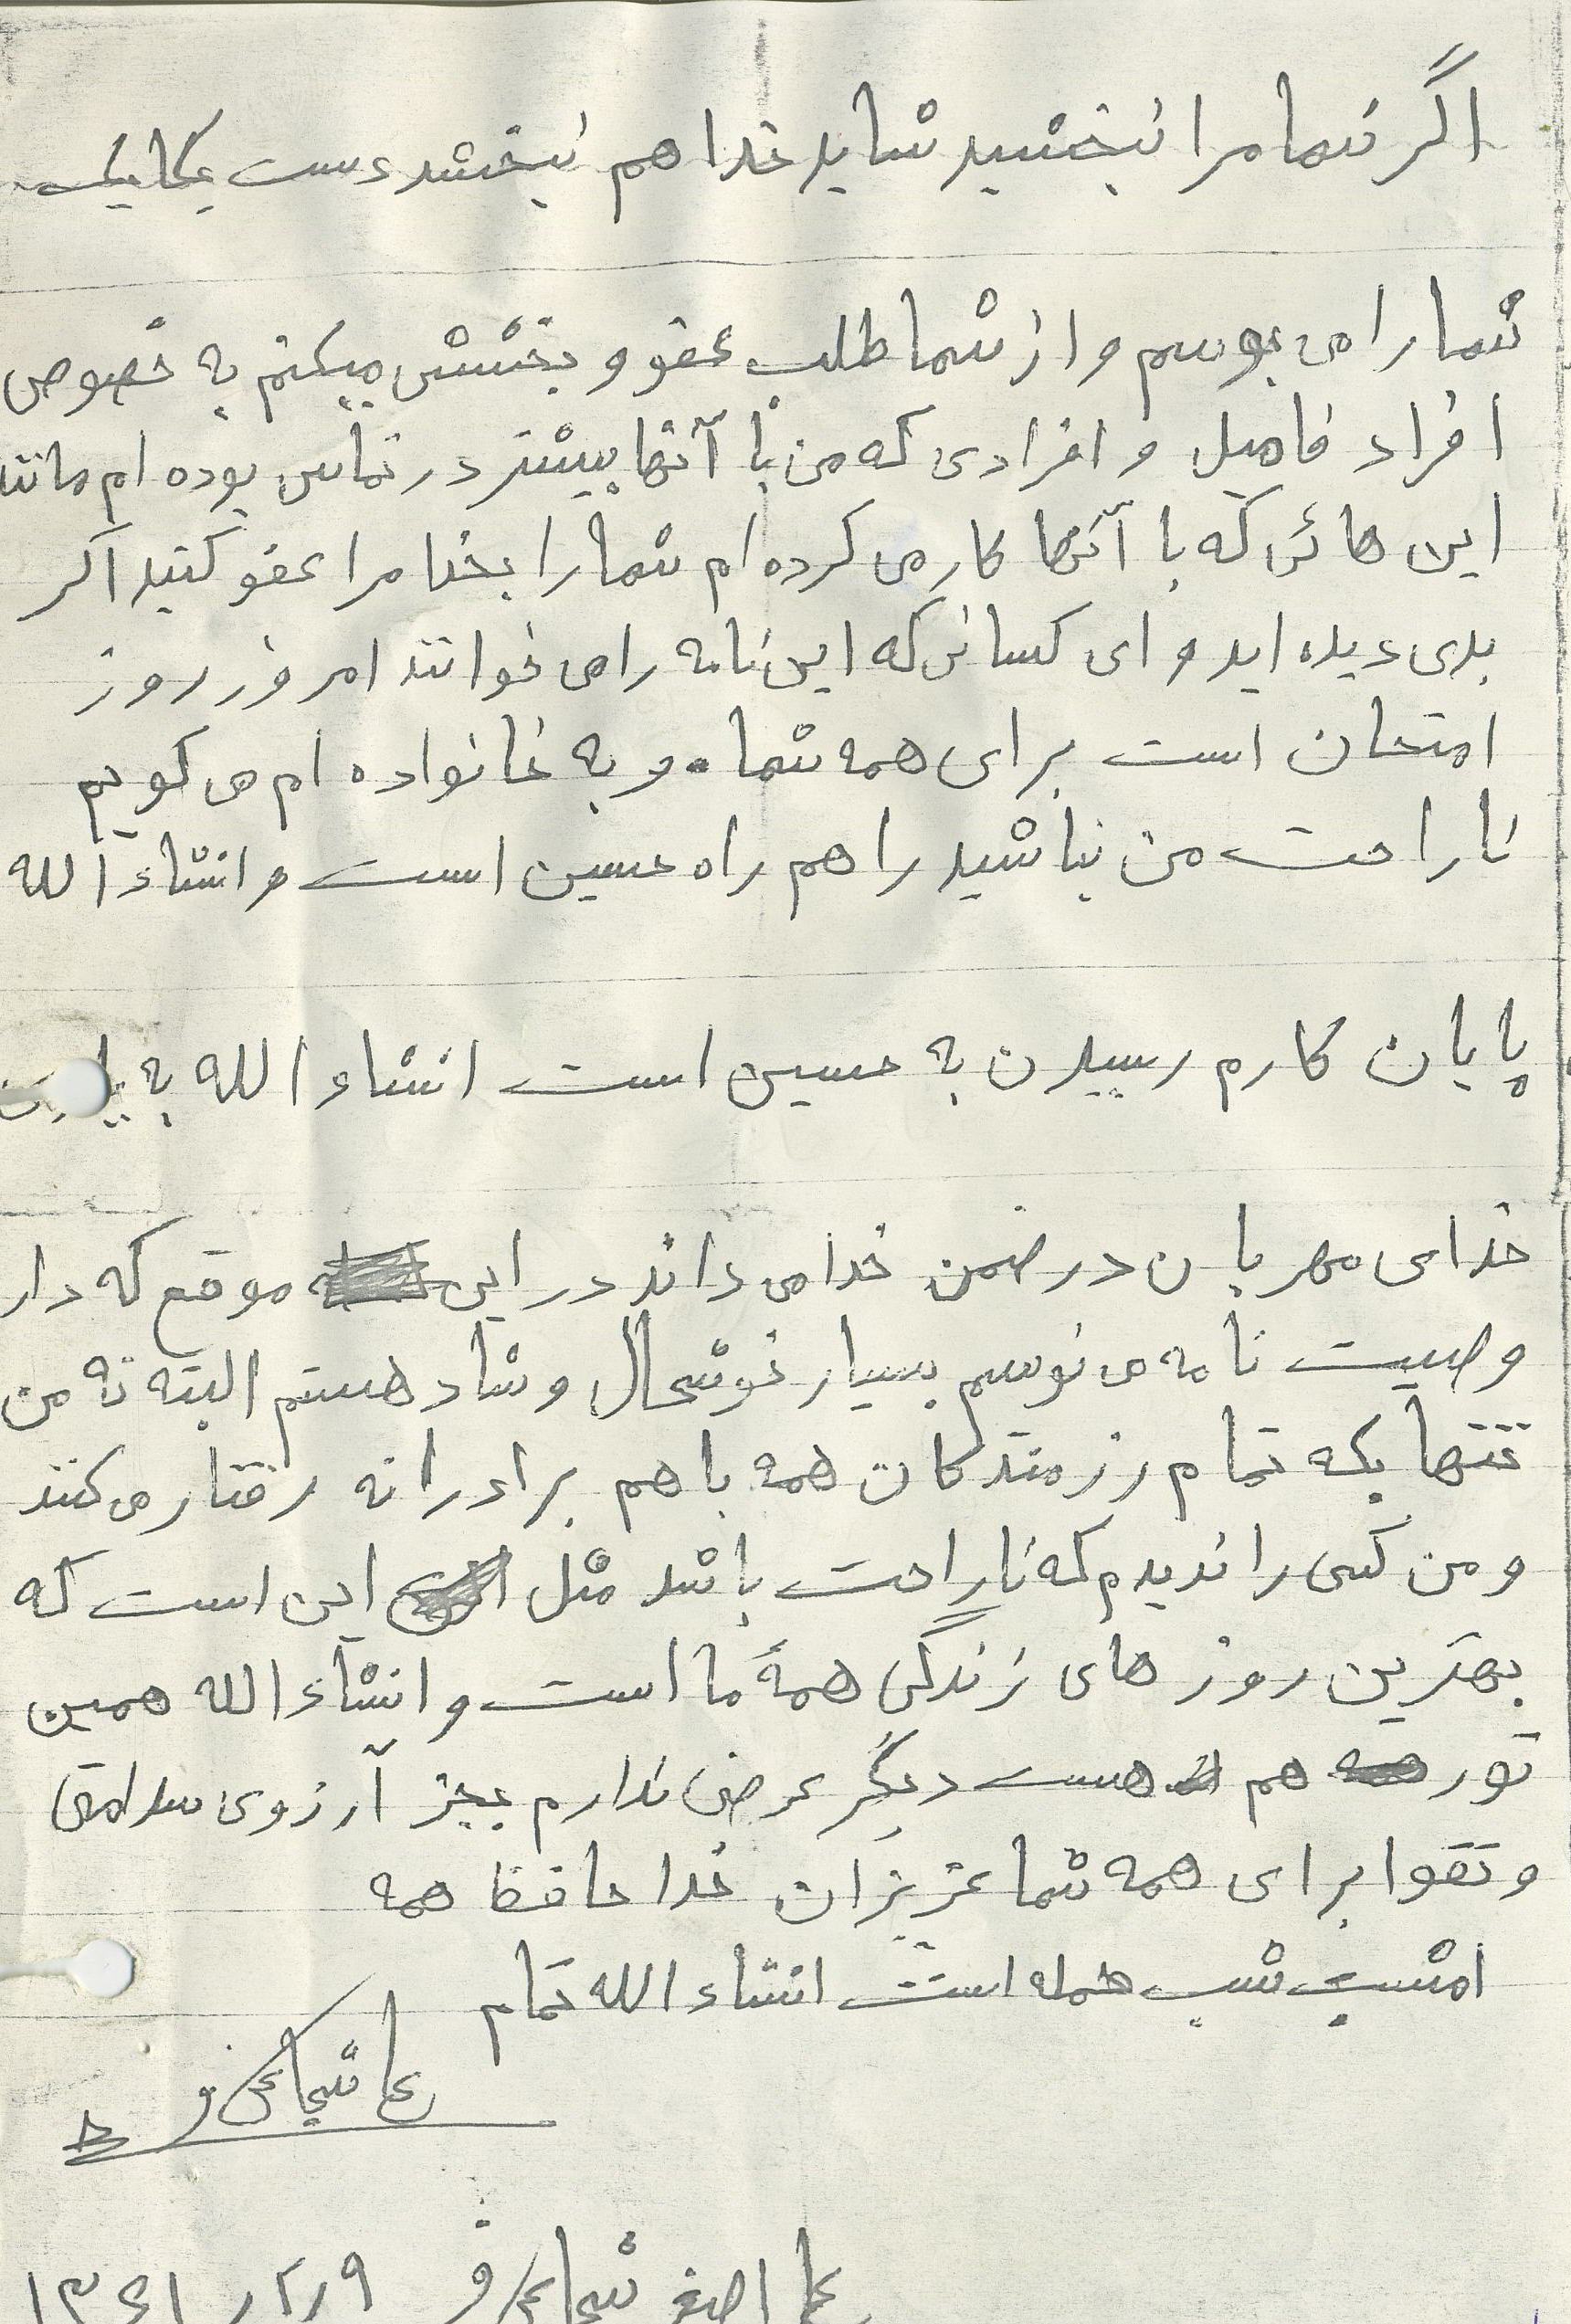 اگر شما مرا نبخشید شاید خدا هم نبخشد دست یکایک
شما را می بوسم و از شما طلب عفو و بخشش میکنم به خصوص
افراد فامیل و افرادی که من با آنها بیشتر در تماس بوده ام مانند
این هائی که با آنها کار می کرده ام شما را بخدا مرا عفو کنید اگر
بدی دیده اید و ای کسانی که این نامه را می خوانند امروز روز
امتحان است برای همه شما. و به خانواده ام می گویم
ناراحت من نباشید راهم راه حسین است و انشاء الله
پایان کارم رسیدن به حسین است انشاء الله به
خدای مهربان در ضمن خدا می داند در این موقع که دار
وصیت نامه می نوسم بسیار خوشحال و شاد هستم البته نه من
تنها بلکه تمام رزمندگان همه با هم برادرانه رفتار می کنند
و من کسی را ندیدم که ناراحت باشد مثل این است که
بهترین روز های زندگی همهٔ ما است و انشاء الله همین
تور هم هست دیگر عرضی ندارم بجز آرزوی سلامتی
و تقوا برای همه شما عزیزان خدا حافظ همه
امشب شب حمله است انشاء الله تمام
اصغر ۱۳۶۱/۲/۹